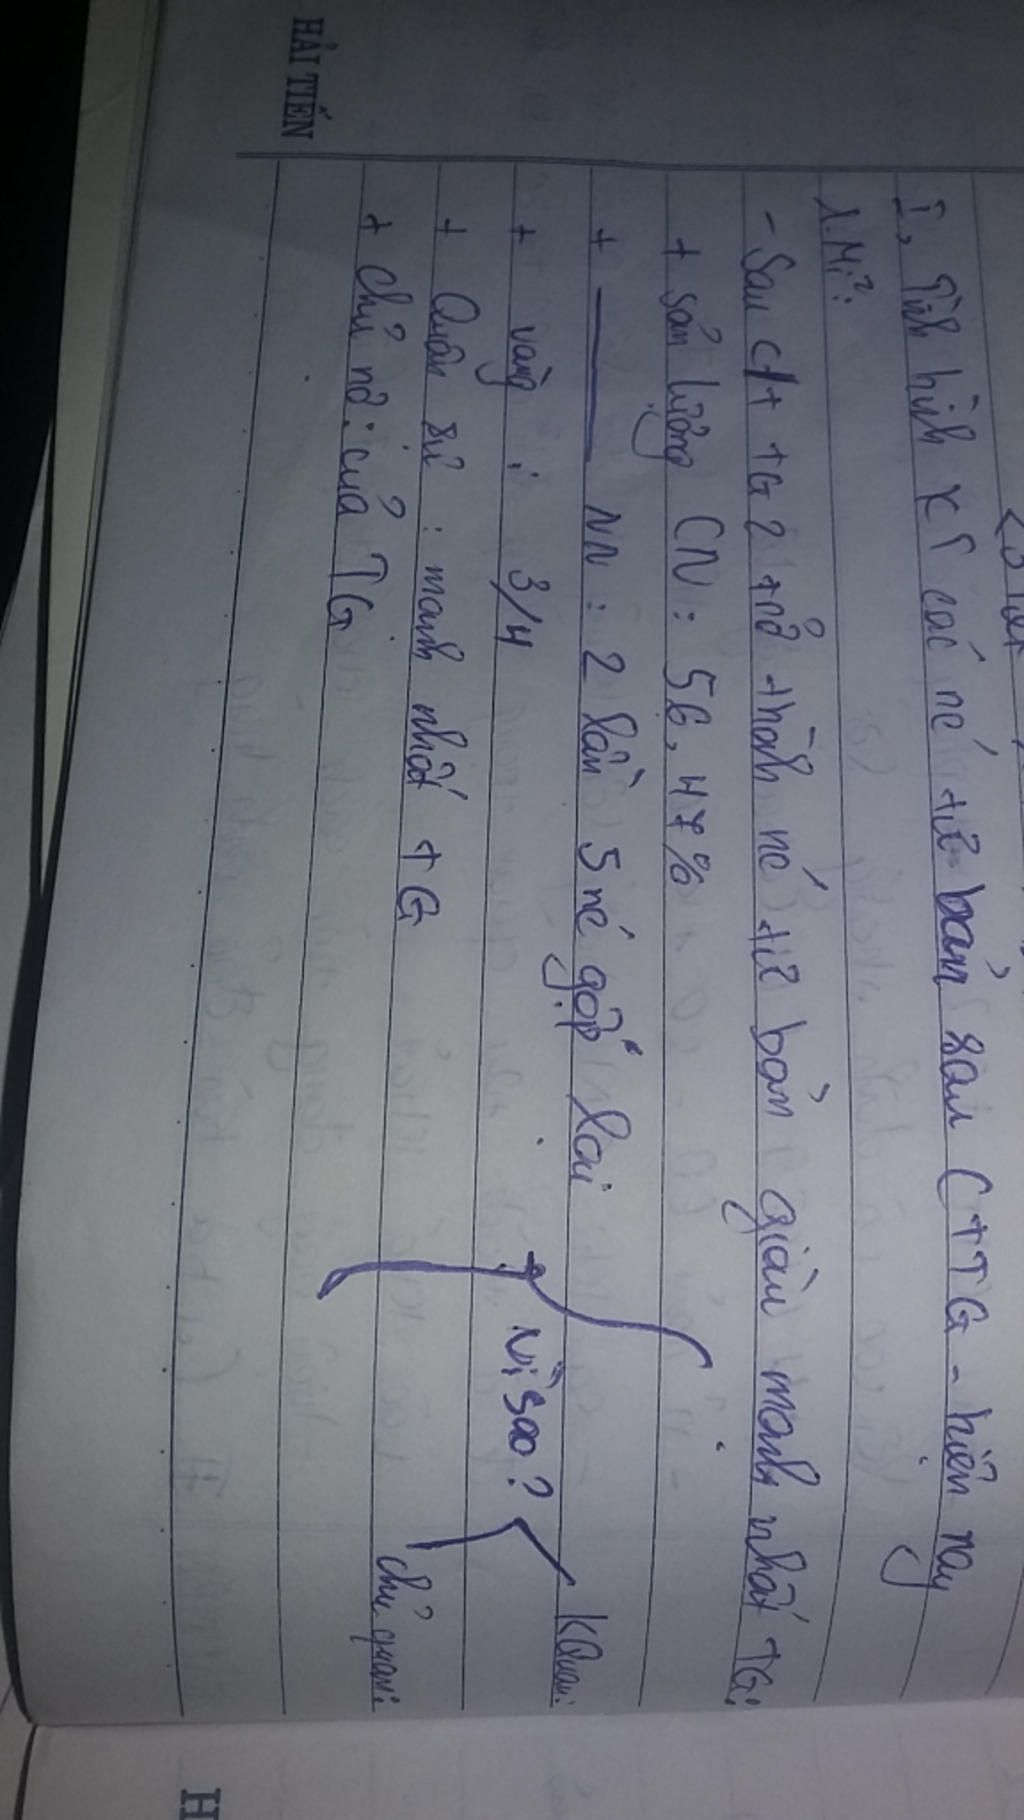 I, Tình hình KT các nc' tư bản sau CTTG - hiện nay
1. Mĩ:
- Sau ctr tG 2 trở thành nc' tư bản giàu mạnh nhất TG:
+ Sản lượng CN: 56,47%
+ —— NN: 2 lần 5 nc' gộp lại
+ vàng: 3/4
+ Quân sự: mạnh nhất TG
+ chủ nợ: của TG
Vì sao?
KQuan:
chủ quan:
HẢI TIẾN
H